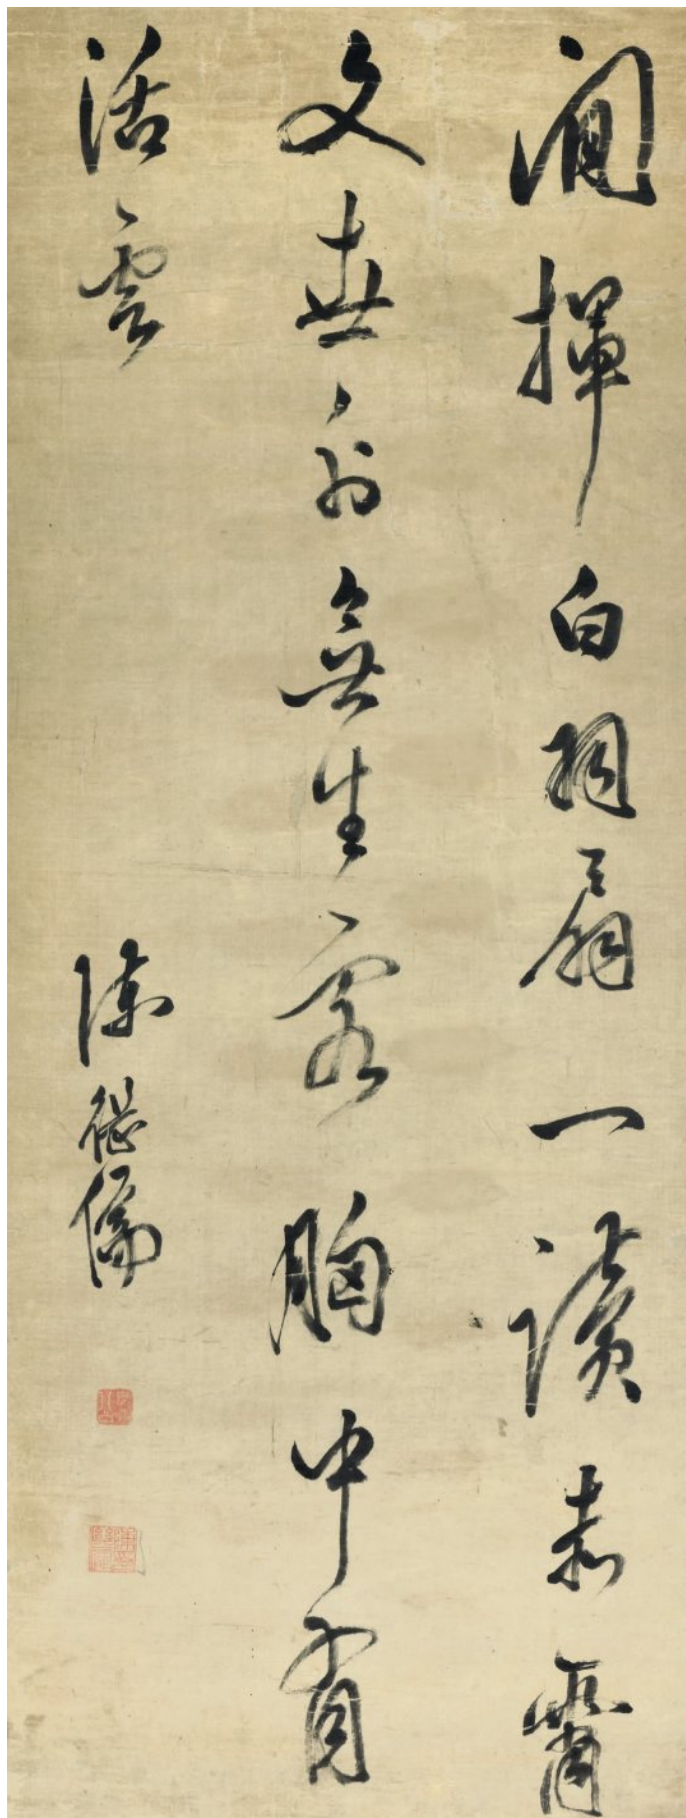 閒揮白羽扇一讀赤霄
文世外無生客胸中有
活雲
陳繼儒